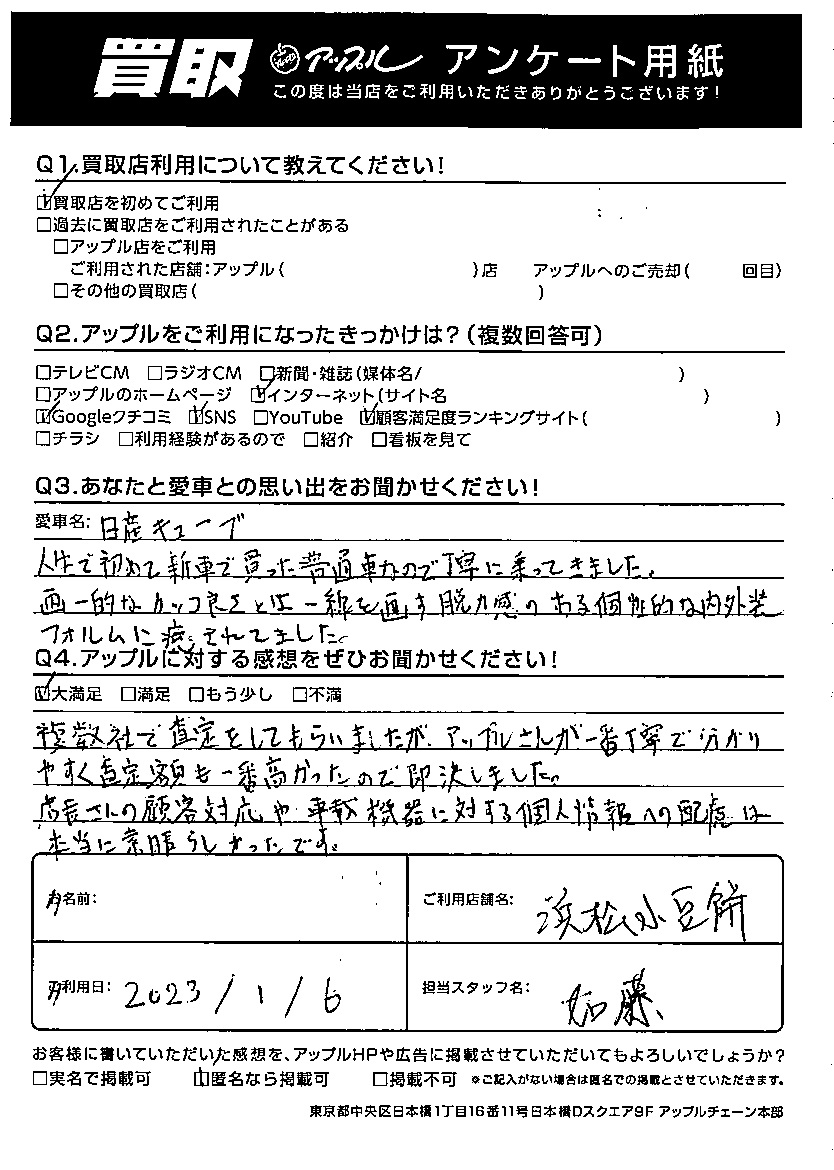 買取 アップル アンケート用紙
この度は当店をご利用いただきありがとうございます!
Q1.買取店利用について教えてください!
☑買取店を初めてご利用
□過去に買取店をご利用されたことがある
□アップル店をご利用
ご利用された店舗:アップル( )店 アップルへのご売却( 回目)
□その他の買取店( )
Q2.アップルをご利用になったきっかけは?(複数回答可)
□テレビCM □ラジオCM □新聞・雑誌(媒体名/ )
□アップルのホームページ ☑インターネット(サイト名 )
☑Googleクチコミ ☑SNS □YouTube ☑顧客満足度ランキングサイト( )
□チラシ □利用経験があるので □紹介 □看板を見て
Q3.あなたと愛車との思い出をお聞かせください!
愛車名: 日産キューブ
人生で初めて新車で買った普通車なので丁寧に乗ってきました。
画一的なカッコ良さとは一線を画す脱力感のある個性的な内外装
フォルムに癒されてました。
Q4.アップルに対する感想をぜひお聞かせください!
☑大満足 □満足 □もう少し □不満
複数社で査定をしてもらいましたが、アップルさんが一番丁寧で分かり
やすく査定額も一番高かったので即決しました。
店長さんの顧客対応や車載機器に対する個人情報への配慮は
本当に素晴らしかったです。
お名前: ご利用店舗名: 浜松小豆餅
ご利用日: 2023/1/6 担当スタッフ名: 加藤
お客様に書いていただいた感想を、アップルHPや広告に掲載させていただいてもよろしいでしょうか?
□実名で掲載可 ☑匿名なら掲載可 □掲載不可 ※ご記入がない場合は匿名での掲載とさせていただきます。
東京都中央区日本橋1丁目16番11号日本橋Dスクエア9F アップルチェーン本部